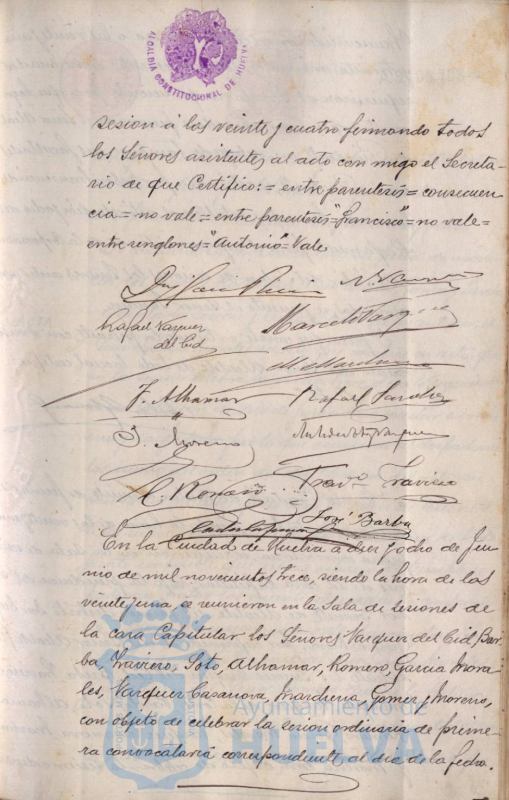 ALCALDIA CONSTITUCIONAL DE HUELVA
sesion á las veinte y cuatro firmando todos
los Señores asistentes al acto con migo el Secreta-
rio de que Certifico: = entre parentesis = consecuen-
cia = no vale = entre parentesis "Francisco" = no vale =
entre renglones = "Antonio" = Vale
Rafael Vazquez
del Cid
Marcelo
F. Alhamar
Rafael
J. Moreno
Antonio Vazquez
M. Romero
Fravo. Traviero
José Barba
En la Ciudad de Huelva a diez y ocho de Ju-
nio de mil novecientos trece, siendo la hora de las
veinte y una, se reunieron en la Sala de Sesiones de
la casa Capitular los Señores Vazquez del Cid, Bar-
ba, Traviero, Soto, Alhamar, Romero, Garcia Mora-
les, Vazquez Casanova, Marchena, Gomez y Moreno,
con objeto de celebrar la sesion ordinaria de prime-
ra convocatoria correspondiente al dia de la fecha.
Ayuntamiento de
HUELVA